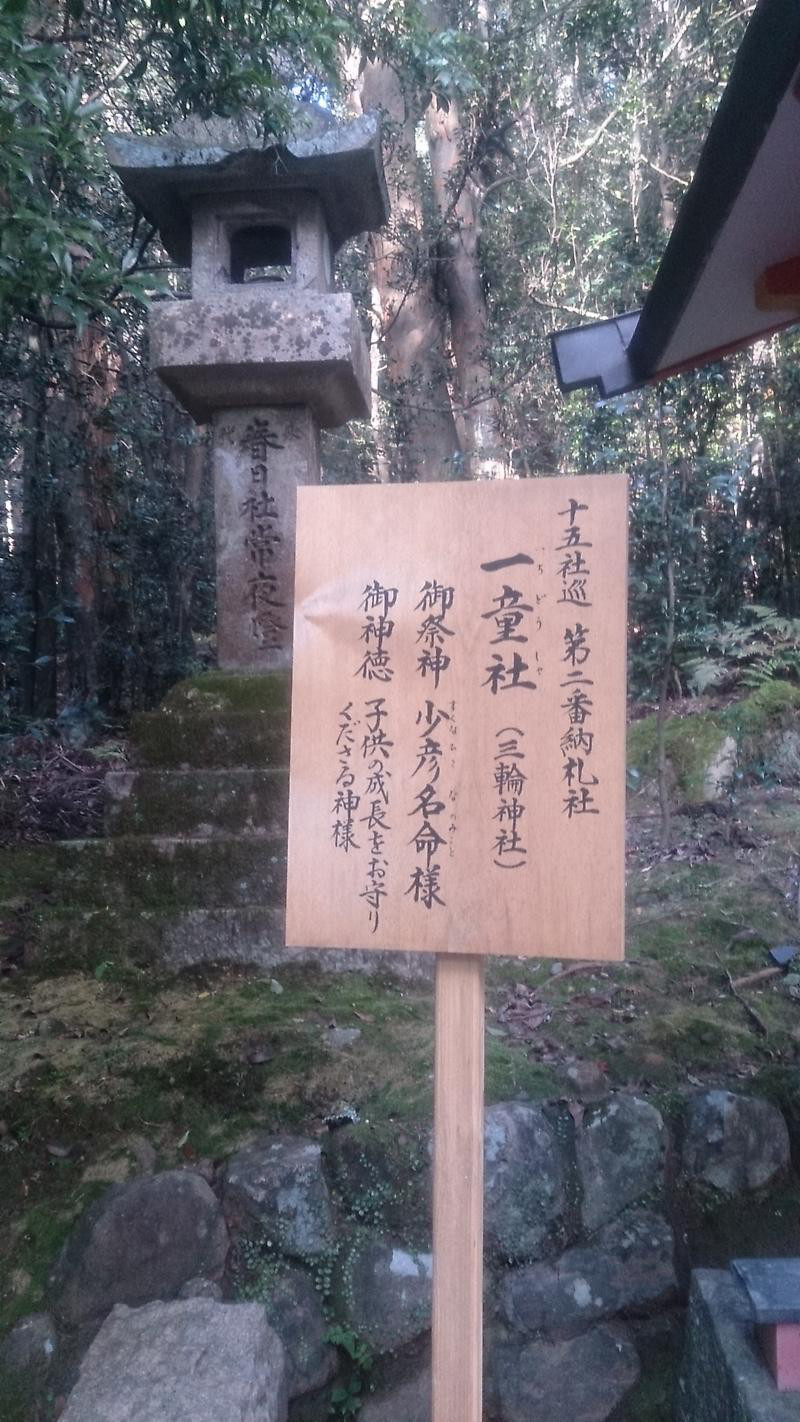 十五社巡 第二番納札社
いちどうしゃ
一童社（三輪神社）
すくなひこなのみこと
御祭神 少彦名命様
御神徳 子供の成長をお守り
くださる神様
春日社常夜燈